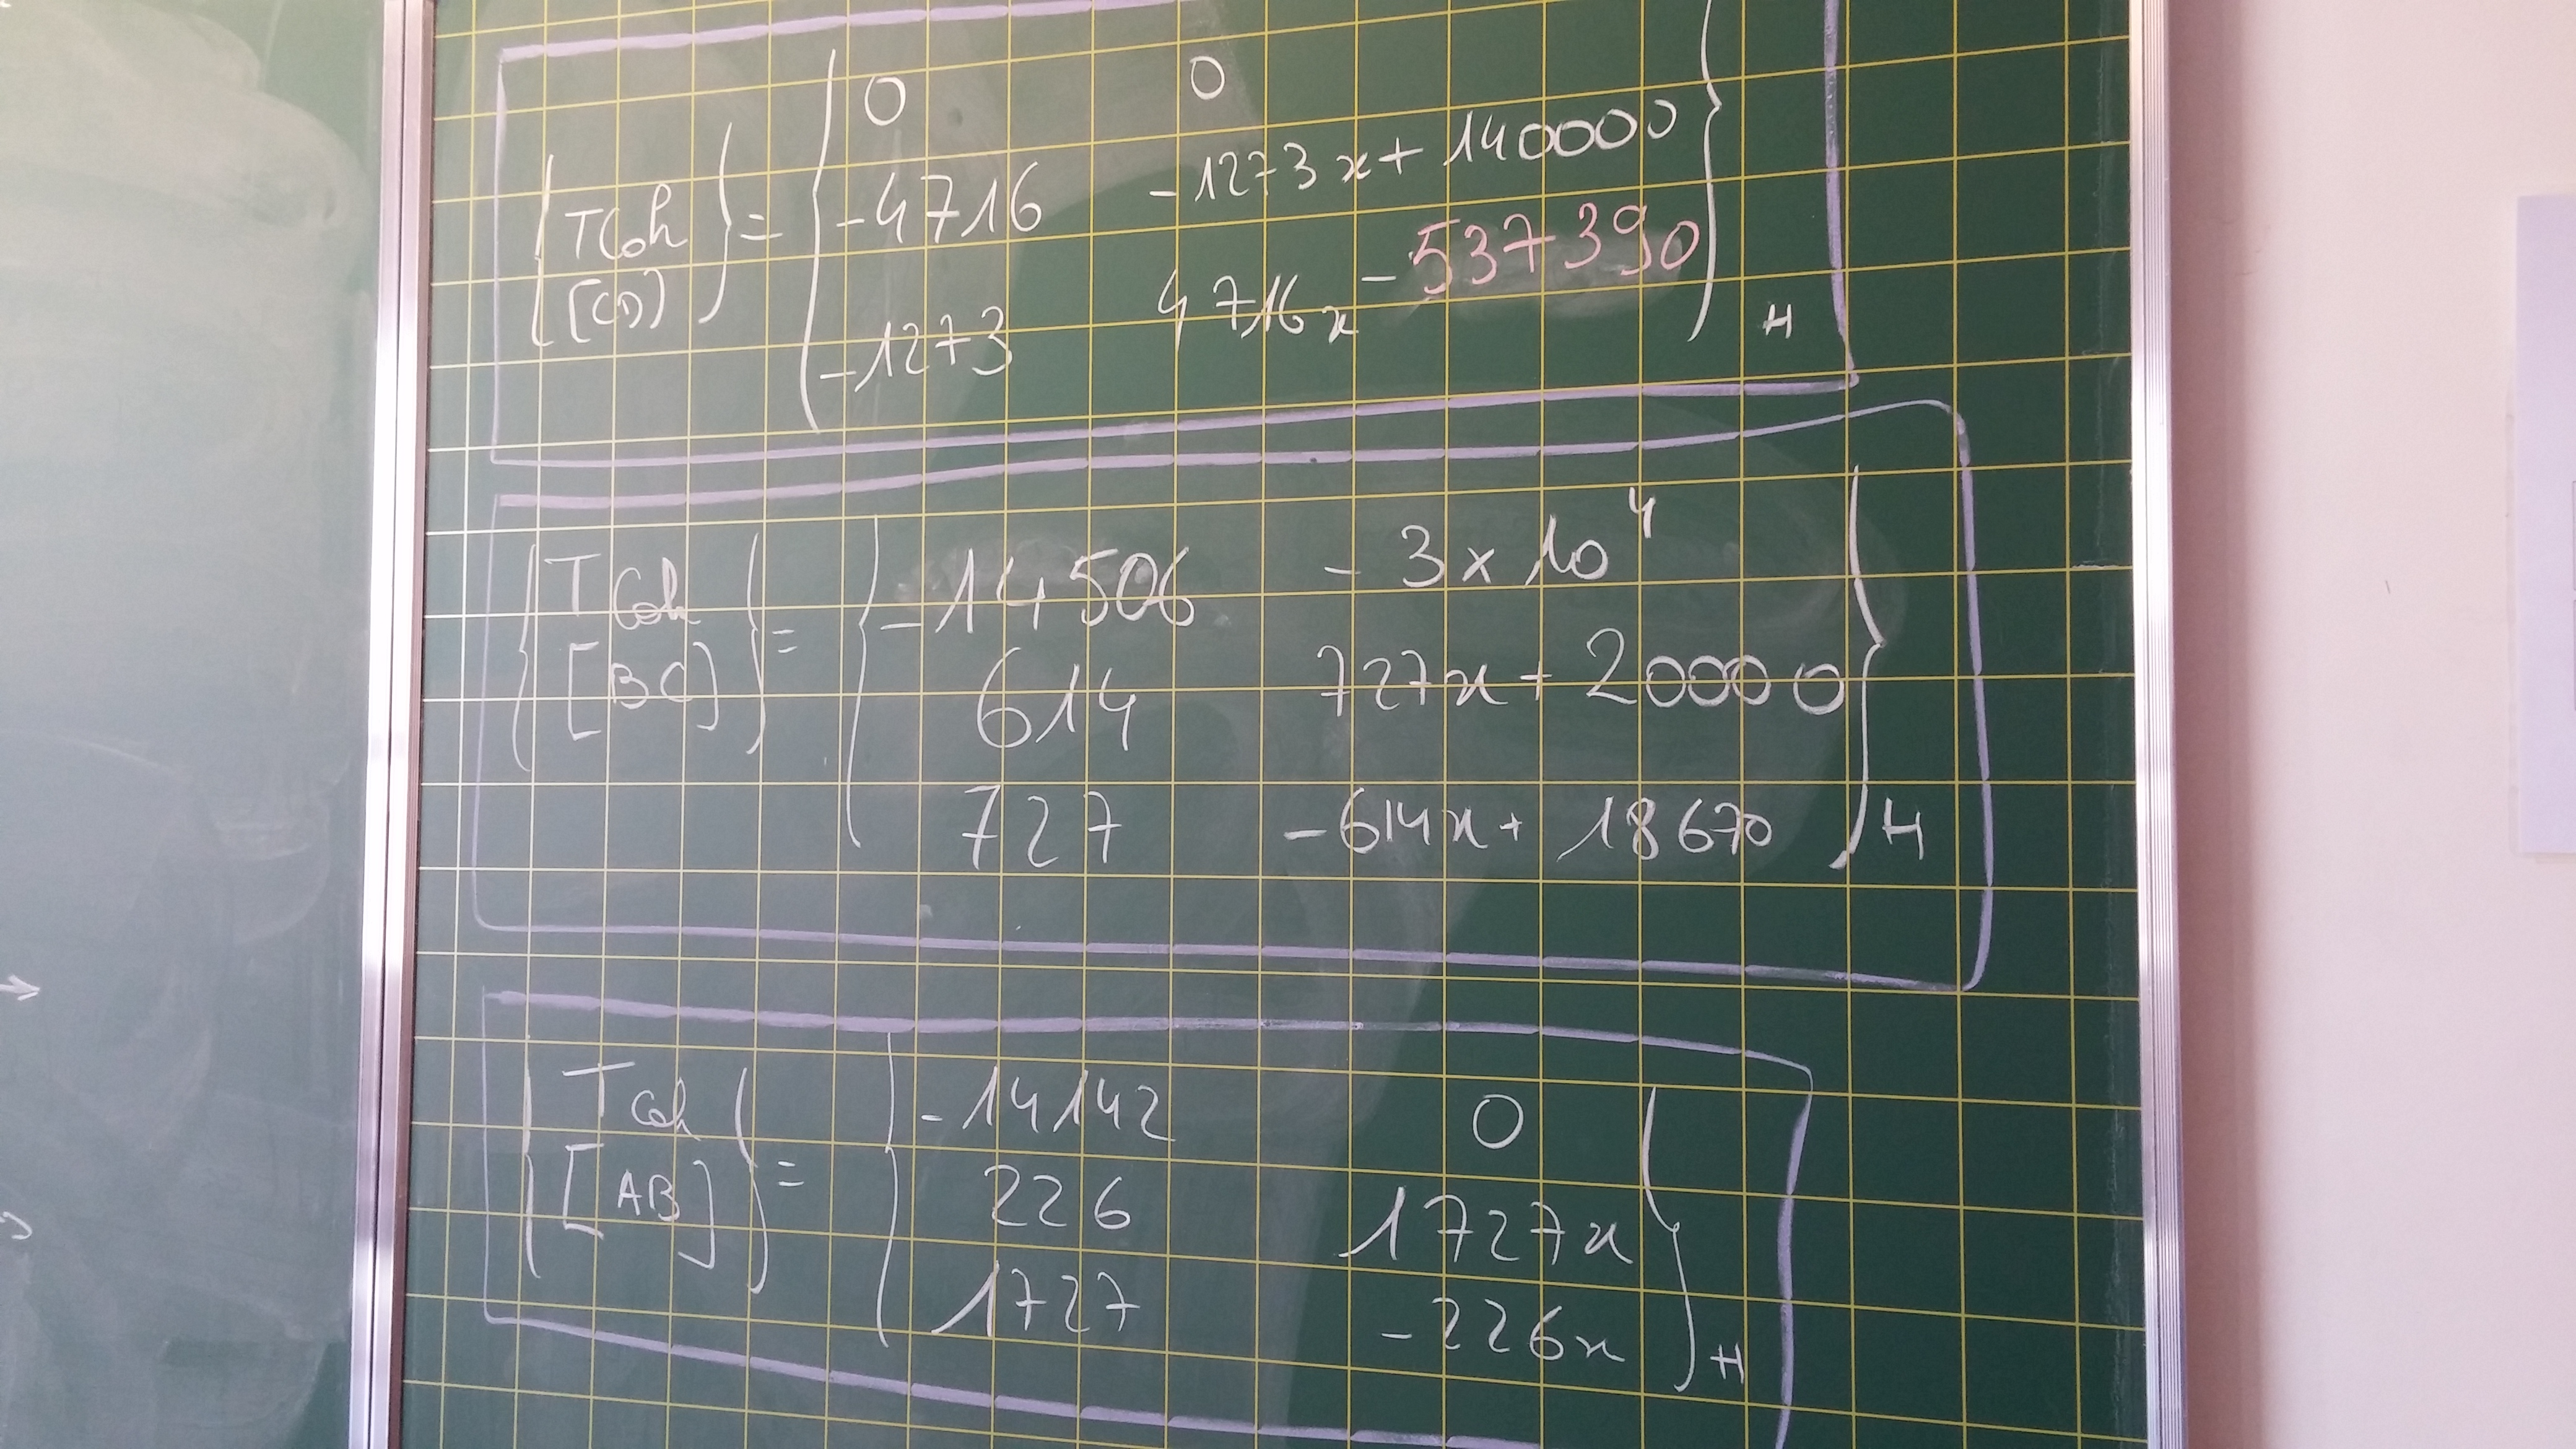 0 0
{TCoh} = { -4716 -1273x + 140000 }
[CD] -1273 4716x - 537390 H
{TCoh} = { -14506 -3x10⁴ }
[BC] 614 727x + 20000
727 -614x + 18670 H
{TCoh} = { -14142 0 }
[AB] 226 1727x
1727 -226x H